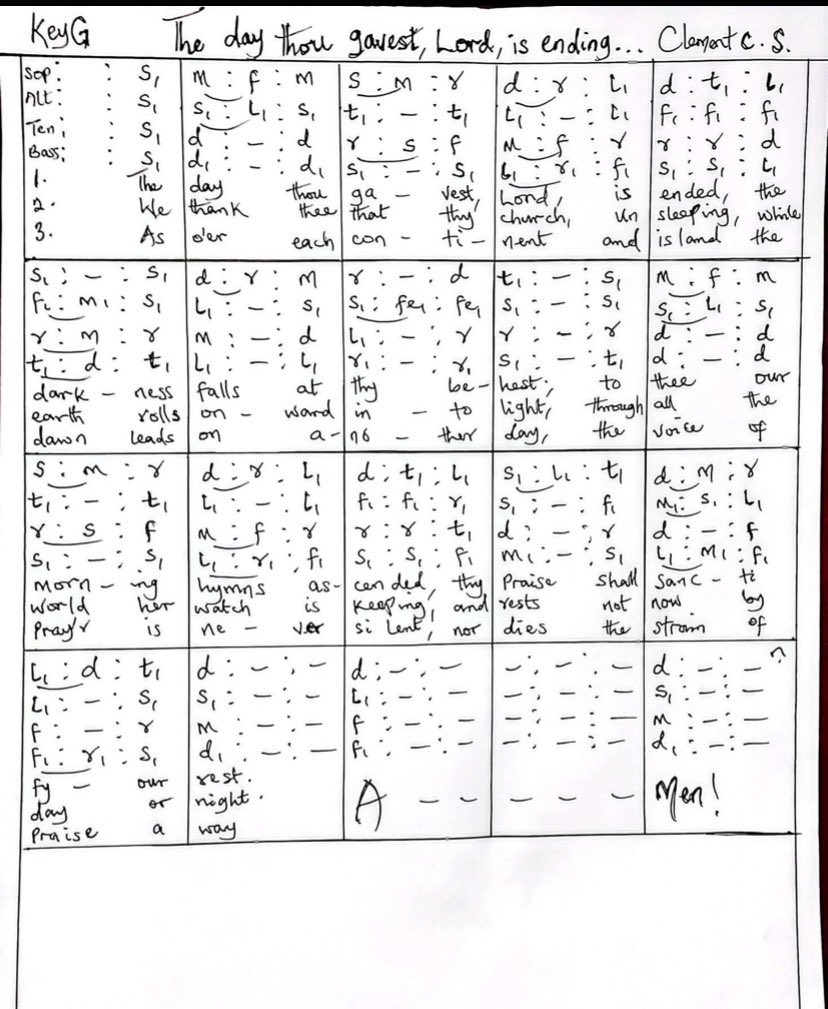 Key G The day thou gavest, Lord, is ending... Clement C. S.
Sop: : S₁ | m : f : m | S : m : r | d : r : L₁ | d : t₁ : L₁
Alt: : S₁ | S₁ : L₁ : S₁ | t₁ : - : t₁ | L₁ : - : L₁ | f₁ : f₁ : f₁
Ten; : S₁ | d : - : d | r : s : f | m : f : r | r : r : d
Bass; : S₁ | d₁ : - : d₁ | S₁ : - : S₁ | L₁ : r₁ : f₁ | S₁ : S₁ : L₁
1. The | day thou | ga - vest, | Lord, is | ended, the
2. We | thank thee | that thy | church, un | sleeping, while
3. As | o'er each | con - ti - | nent and | island the
S₁ : - : S₁ | d : r : m | r : - : d | t₁ : - : S₁ | m : f : m
f₁ : m₁ : S₁ | L₁ : - : S₁ | S₁ : fe₁ : fe₁ | S₁ : - : S₁ | S₁ : L₁ : S₁
r : m : r | m : - : d | L₁ : - : r | r : - : r | d : - : d
t₁ : d : t₁ | L₁ : - : L₁ | r₁ : - : r₁ | S₁ : - : t₁ | d : - : d
dark - ness | falls at | thy be- | hest; to | thee our
earth rolls | on - ward | in - to | light, through | all the
dawn leads | on a- | no - ther | day, the | voice of
S : m : r | d : r : L₁ | d : t₁ : L₁ | S₁ : L₁ : t₁ | d : m : r
t₁ : - : t₁ | L₁ : - : L₁ | f₁ : f₁ : r₁ | S₁ : - : f₁ | m₁ : S₁ : L₁
r : s : f | m : f : r | r : r : t₁ | d : - : r | d : - : f
S₁ : - : S₁ | L₁ : r₁ : f₁ | S₁ : S₁ : f₁ | m₁ : - : S₁ | L₁ : m₁ : f₁
morn - ing | hymns as- | cended, thy | Praise shall | sanc - ti
world her | watch is | keeping, and | rests not | now by
Pray'r is | ne - ver | silent, nor | dies the | strain of
L₁ : d : t₁ | d : - : - | d : - : - | - : - : - | d : - : -
L₁ : - : S₁ | S₁ : - : - | L₁ : - : - | - : - : - | S₁ : - : -
f : - : r | m : - : - | f : - : - | - : - : - | m : - : -
f₁ : r₁ : S₁ | d₁ : - : - | f₁ : - : - | - : - : - | d₁ : - : -
fy - our | rest. | A - - | - - - | Men!
day or | night.
Praise a | way